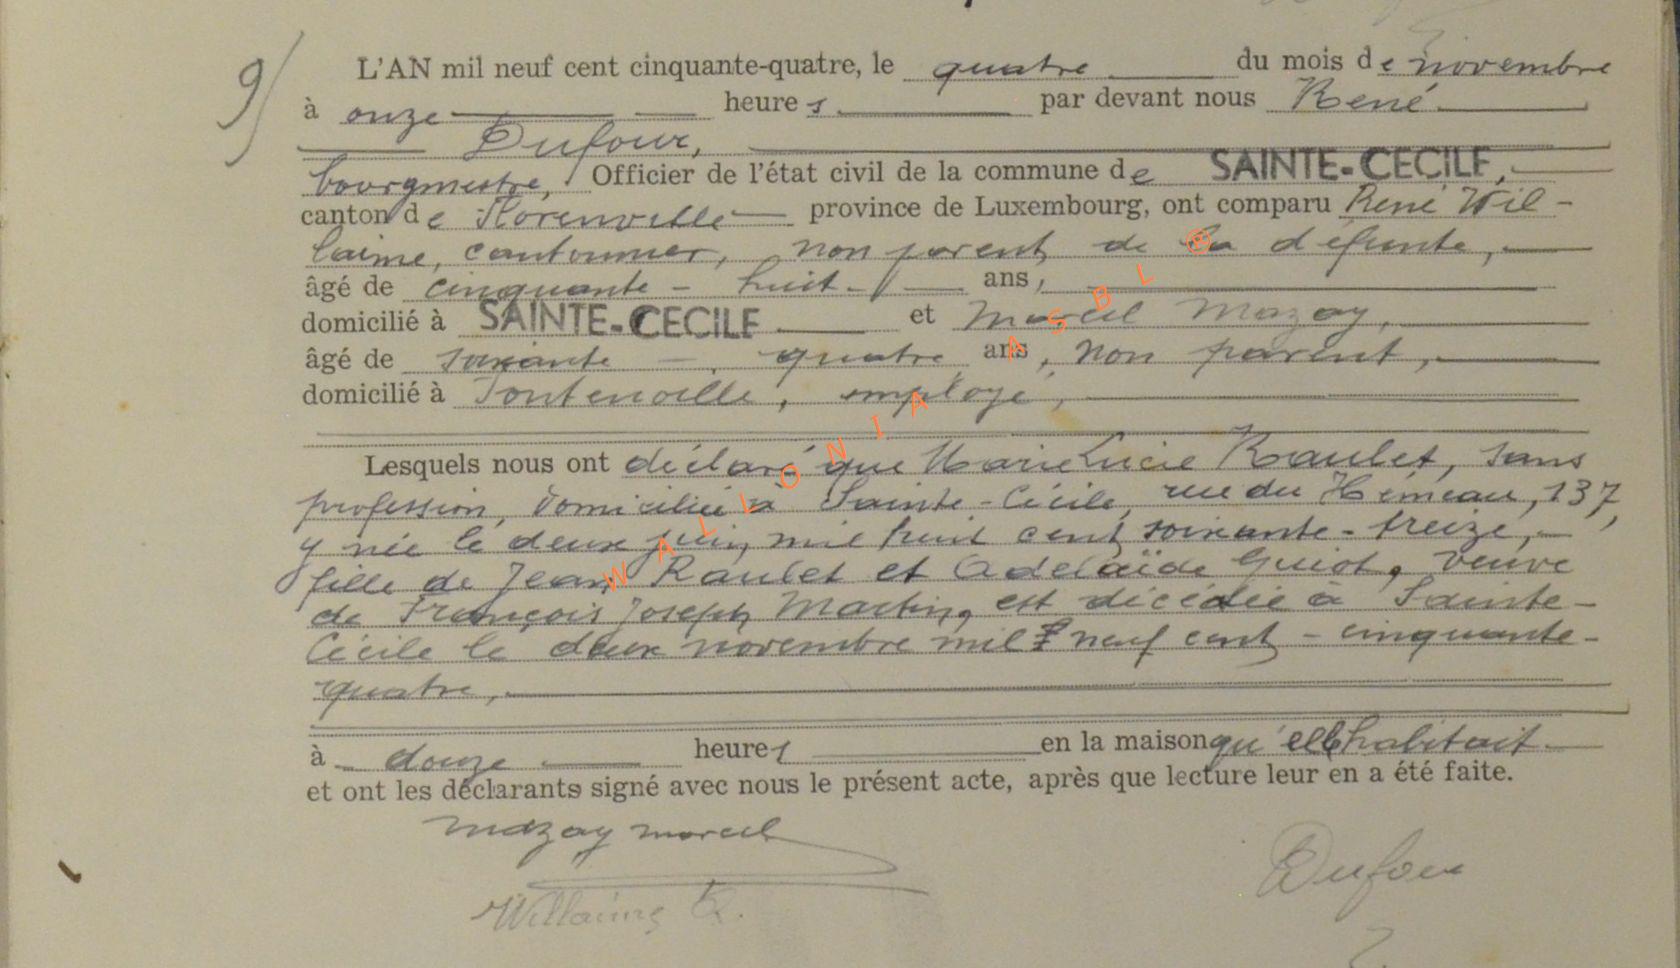 9/ L'AN mil neuf cent cinquante-quatre, le quatre du mois de novembre
à onze heures par devant nous René
Dufour,
bourgmestre, Officier de l'état civil de la commune de SAINTE-CECILE,
canton de Florenville province de Luxembourg, ont comparu René Wil-
laime, cantonnier, non parent de la défunte,
âgé de cinquante - huit ans,
domicilié à SAINTE-CECILE et Marcel Mazay,
âgé de soixante - quatre ans, non parent,
domicilié à Fontenoille, employé,
Lesquels nous ont déclaré que Marie Lucie Raulet, sans
profession, domiciliée à Sainte-Cécile, rue du Hémeau, 137,
y née le deux juin mil huit cent soixante-treize,
fille de Jean Raulet et Adelaïde Guiot, veuve
de François Joseph Martin, est décédée à Sainte-
Cécile le deux novembre mil neuf cent - cinquante-
quatre,
à douze heures en la maison qu'elle habitait
et ont les déclarants signé avec nous le présent acte, après que lecture leur en a été faite.
Mazay Marcel
Dufour
Willaime R.
WALLONIA ASBL ®